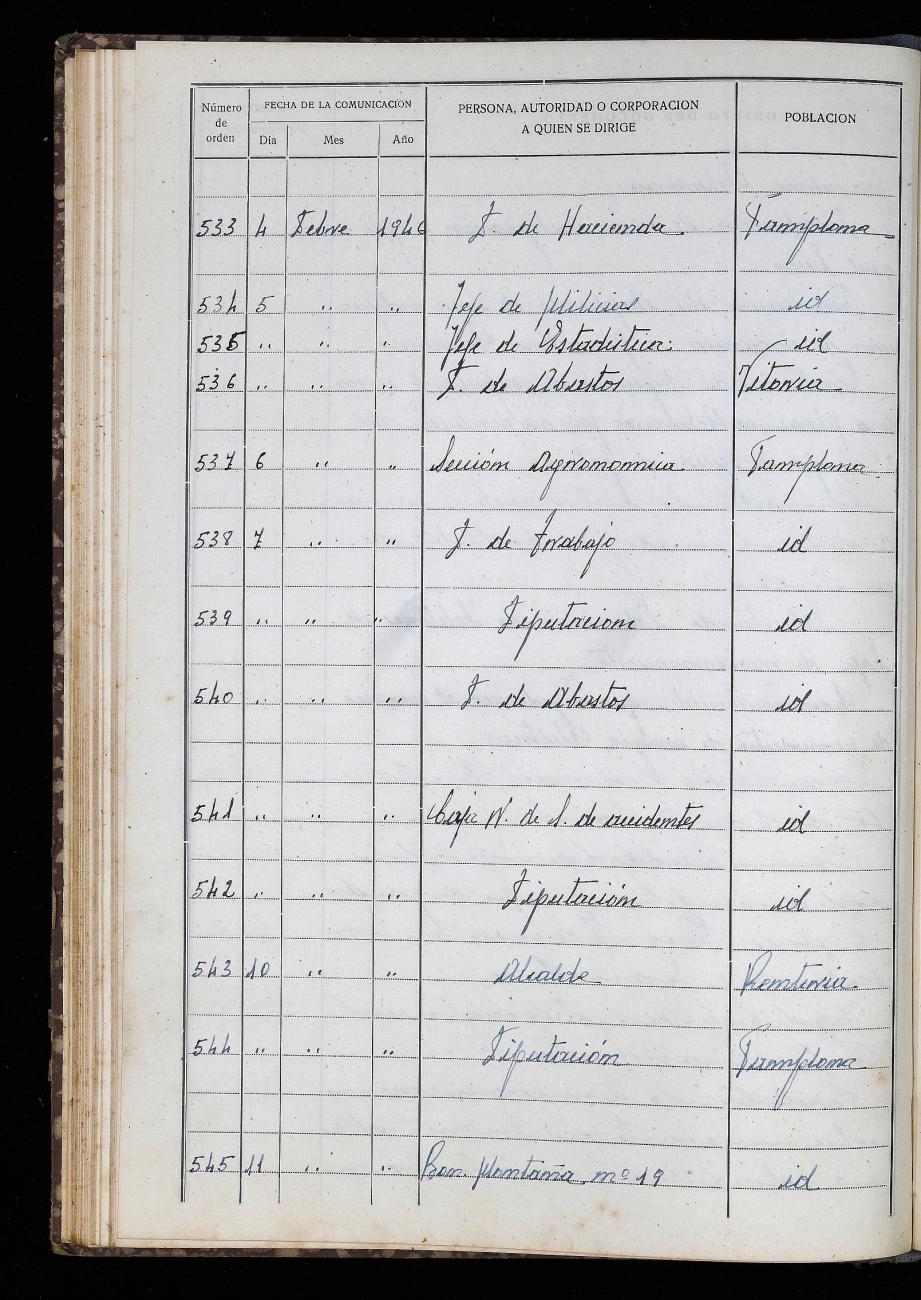 Número de orden FECHA DE LA COMUNICACION PERSONA, AUTORIDAD O CORPORACION A QUIEN SE DIRIGE POBLACION
Día Mes Año
533 4 Febre 1946 D. de Hacienda. Pamplona
534 5 ,, ,, Jefe de Milicias id
535 ,, ,, ,, Jefe de Estadistica. id
536 ,, ,, ,, D. de Abastos Vitoria
537 6 ,, ,, Sección Agronomica. Pamplona
538 7 ,, ,, D. de Trabajo id
539 ,, ,, ,, Diputacion id
540 ,, ,, ,, D. de Abastos id
541 ,, ,, ,, Caja N. de S. de accidentes id
542 ,, ,, ,, Diputación id
543 10 ,, ,, Alcalde Renteria.
544 ,, ,, ,, Diputación Pamplona
545 11 ,, ,, Bon. Montaña nº 19 id